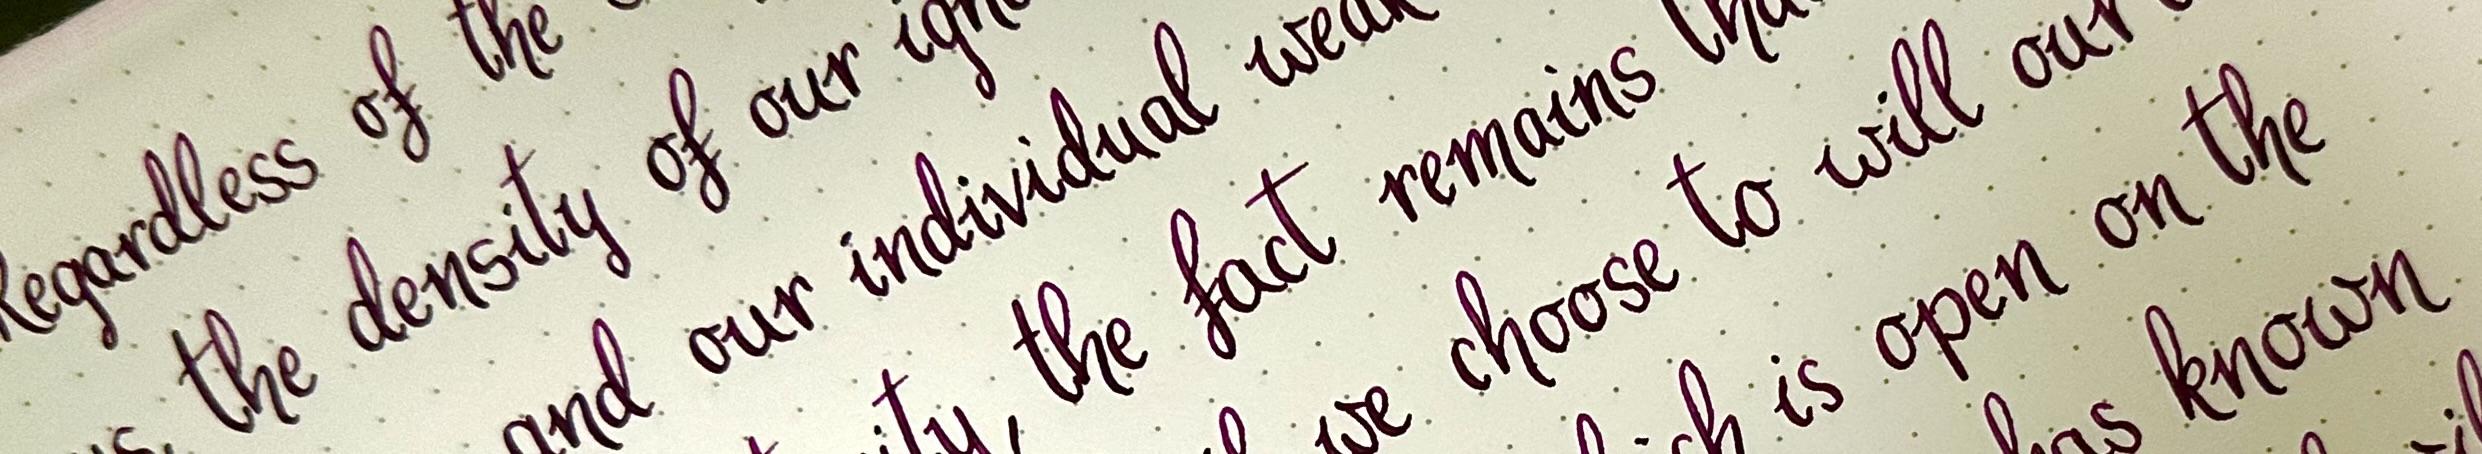 Regardless of the
the density of our
and our individual
the fact remains
we choose to will our
is open on the
has known